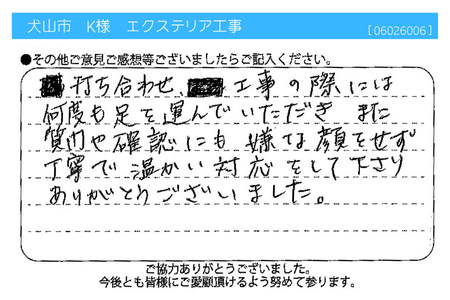 犬山市 K様 エクステリア工事
[06026006]
●その他ご意見ご感想等ございましたらご記入ください。
打ち合わせ、工事の際には
何度も足を運んでいただき また
質問や確認にも嫌な顔をせず
丁寧で温かい対応をして下さり
ありがとうございました。
ご協力ありがとうございました。
今後とも皆様にご愛顧頂けるよう努めて参ります。